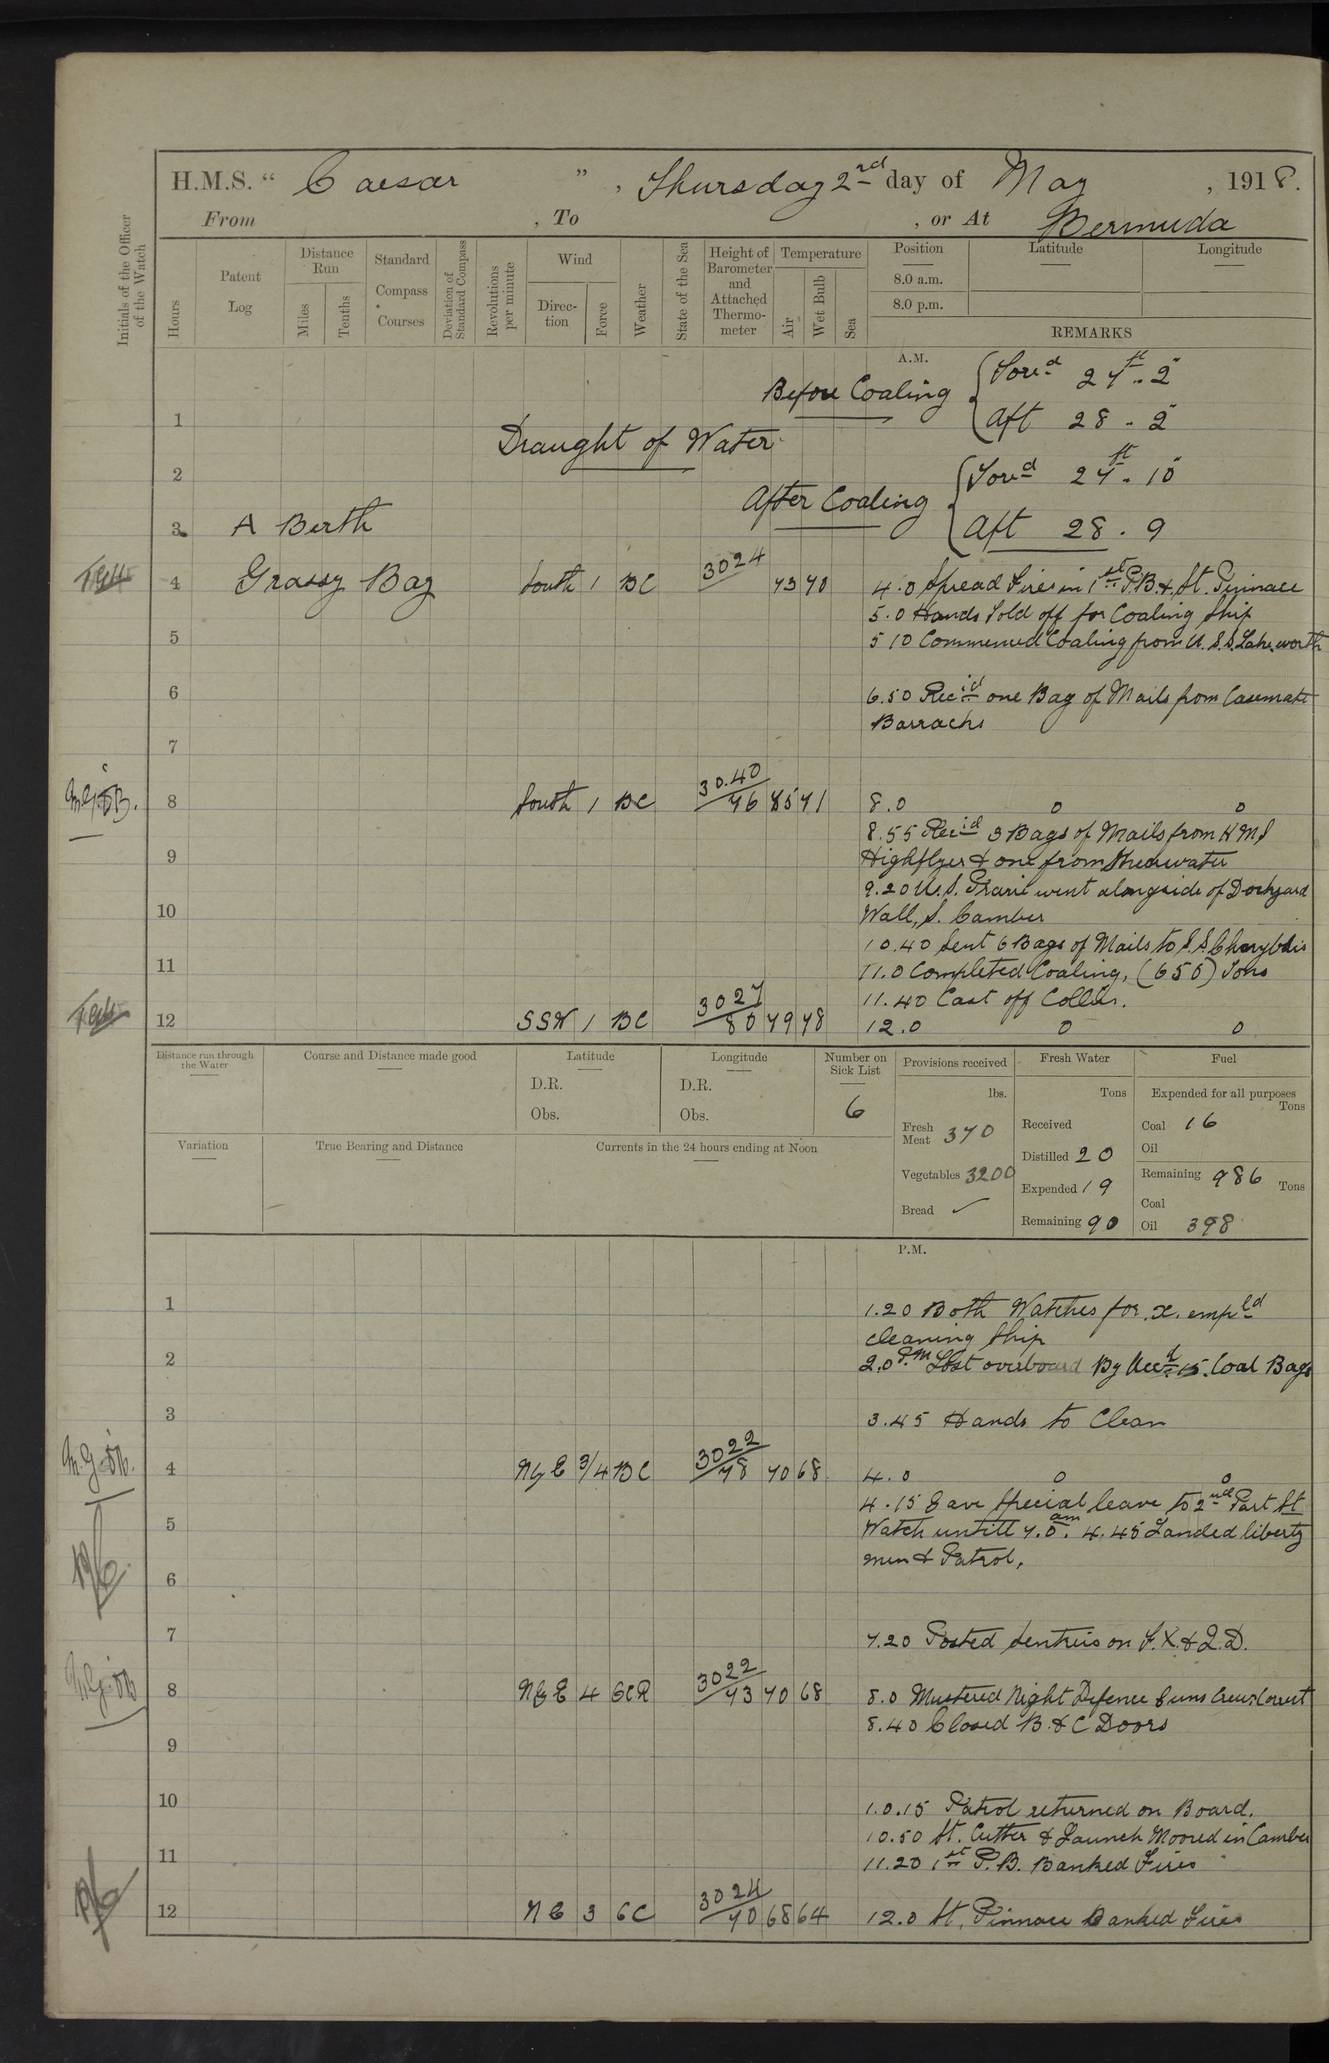 H.M.S. “ Caesar ”, Thursday 2nd day of May, 1918.
From , To , or At Bermuda
Initials of the Officer of the Watch
Hours
Patent Log
Distance Run
Miles
Tenths
Standard Compass Courses
Deviation of Standard Compass
Revolutions per minute
Wind
Direction
Force
Weather
State of the Sea
Height of Barometer and Attached Thermometer
Temperature
Air
Wet Bulb
Sea
Position
8.0 a.m.
8.0 p.m.
Latitude
Longitude
REMARKS
A.M.
Before Coaling Forwd 27ft. 2"
Aft 28 - 2"
1
Draught of Water
2
After Coaling Ford 27ft. 10"
3 A Berth Aft 28 . 9
4 Grassy Bay South 1 BC 3024 73 70 4.0 Spread Fires in 1st P.B. & St. Pinnace
5.0 Hands Told off for Coaling Ship
5 5 10 Commenced Coaling from U.S.S. Lakeworth
6 6.50 Recid one Bag of Mails from Casemate
Barracks
7
8 South 1 BC 30.40 76 85 71 8.0 0 0
8.55 Recid 3 Bags of Mails from HMS
9 Highflyer & one from Shearwater
9.20 U.S. Prarie went alongside of Dockyard
10 Wall, S. Camber
10.40 Sent 6 Bags of Mails to S.S. Charybdis
11 11.0 Completed Coaling, (655) Tons
11.40 Cast off Collier.
12 SSW 1 BC 3027 80 79 78 12.0 0 0
Distance run through the Water
Course and Distance made good
Latitude
D.R.
Obs.
Longitude
D.R.
Obs.
Number on Sick List
6
Provisions received
lbs.
Fresh Meat 370
Vegetables 3200
Bread ✓
Fresh Water
Tons
Received
Distilled 20
Expended 19
Remaining 90
Fuel
Expended for all purposes
Tons
Coal 16
Oil
Remaining 986 Tons
Coal
Oil 398
Variation
True Bearing and Distance
Currents in the 24 hours ending at Noon
P.M.
1 1.20 Both Watches for x. empld
cleaning Ship
2 2.0 P.M Lost overboard By Accd 15. Coal Bags
3 3.45 Hands to Clean
4 NyE 3/4 BC 3022 78 70 68 4.0 0 0
4.15 Gave Special leave to 2nd Part St
5 Watch untill 7.0 am. 4.45 Landed liberty
men & Patrol.
6
7 7.20 Posted Sentries on F.X. & Q.D.
8 NyE 4 GCR 3022 73 70 68 8.0 Mustered Night Defence Guns Crews Correct
8.40 Closed B. & C Doors
9
10 10.15 Patrol returned on Board.
10.50 St. Cutter & Launch Moored in Camber
11 11.20 1st P.B. Banked Fires
12 NE 3 GC 3024 70 68 64 12.0 St. Pinnace Banked Fires